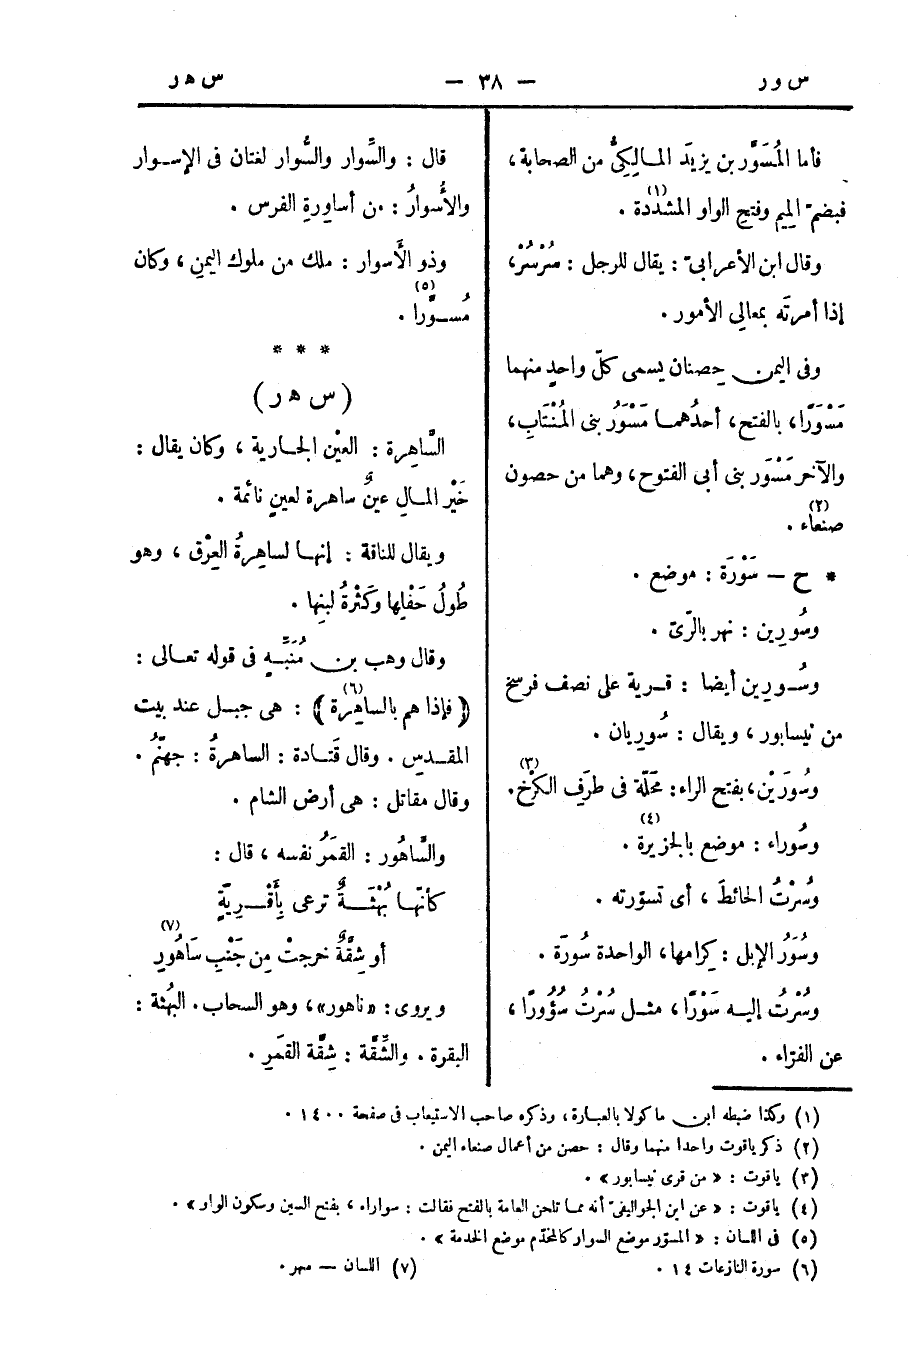 س ور
— ٣٨ —
س هر
فأما المُسَوَّر بن يزيدَ المالِكِىُّ من الصحابة،
فبضمّ الميم وفتح الواو المشددة (١).
وقال ابن الأعرابىّ: يقال للرجل: سُرْسُرْ،
إذا أمرتَه بمعالى الأمور.
وفى اليمن حِصنان يسمى كلّ واحدٍ منهما
مَسْوَرًا، بالفتح، أحدُهما مَسْوَرُ بنى المُنْتَابِ،
والآخر مَسْوَر بنى أبى الفتوح، وهما من حصون
صنعاء (٢).
* ح — سَوْرَة: موضع.
وسُورِين: نهر بالرّىّ.
وسُورِين أيضا: قرية على نصف فرسخ
من نيسابور، ويقال: سُورِيان.
وسُورَيْن، بفتح الراء: مَحَلّة فى طرَفِ الكَرْخ (٣).
وسُوراء: موضع بالجزيرة (٤).
وسُرْتُ الحائطَ، أى تسوّرته.
وسُوَرُ الإبل: كِرامها، الواحدة سُورَة.
وسُرْتُ إليه سَوْرًا، مثل سُرْتُ سُؤُورًا،
عن الفرّاء.
قال: والسِّوار والسُّوار لغتان فى الإسوار
والأُسوارُ: من أساورةِ الفرس.
وذو الأَسوار: ملك من ملوك اليمنِ، وكان
مُسوَّرا (٥).
* * *
(س هر)
السَّاهِرة: العيْن الجارية، وكان يقال:
خَيْر المالِ عينٌ ساهرة لعينٍ نائمة.
ويقال للناقة: إنها لساهِرةُ العِرْق، وهو
طُولُ حَفْلِها وكَثْرةُ لبنِها.
وقال وهب بن مُنَبِّهٍ فى قوله تعالى:
﴿فإذا هم بالساهِرة﴾ (٦): هى جبل عند بيت
المقدس. وقال قَتادة: الساهرةُ: جهنّمُ.
وقال مقاتل: هى أرض الشام.
والسَّاهُور: القمَرُ نفسه، قال:
كأنّها بُهْثَةٌ ترعى بِأَقْرِيةٍ
أو شِقَّةٌ خرجتْ مِن جَنْبِ سَاهُورِ (٧)
ويروى: «ناهور»، وهو السحاب. البُهْثة:
البقرة. والشِّقَّة: شِقّة القمَرِ.
(١) وكذا ضبطه ابن ماكولا بالعبارة، وذكره صاحب الاستيعاب فى صفحة ١٤٠٠.
(٢) ذكر ياقوت واحدا منهما وقال: حصن من أعمال صنعاء اليمن.
(٣) ياقوت: «من قرى نيسابور».
(٤) ياقوت: «عن ابن الجواليقىّ أنه مما تلحن العامة بالفتح فقالت: سواراء، بفتح السين وسكون الواو».
(٥) فى اللسان: «المسوّر موضع السوار كالمخدّم موضع الخدمة».
(٦) سورة النازعات ١٤.
(٧) اللسان — سهر.